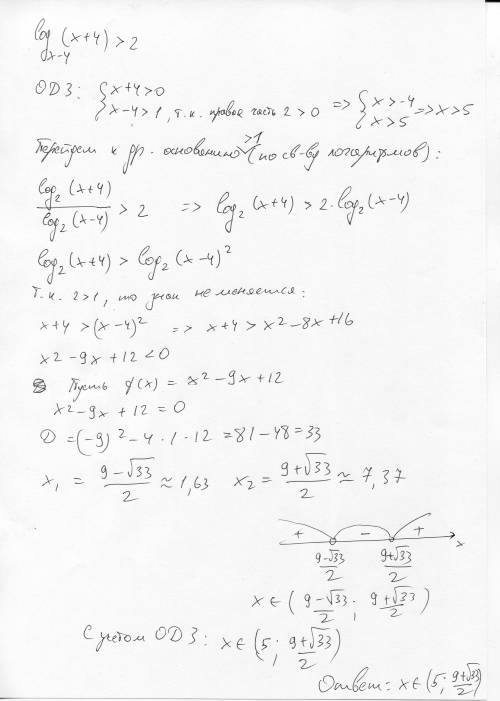 log_{x-4} (x+4) > 2
ОДЗ: { x+4>0
x-4>1, т.к. правая часть 2>0 => { x>-4
x>5 => x>5
Перейдем к др. основанию >1 (по св-ву логарифмов):
log₂(x+4) / log₂(x-4) > 2 => log₂(x+4) > 2·log₂(x-4)
log₂(x+4) > log₂(x-4)²
т.к. 2>1, то знак не меняется:
x+4 > (x-4)² => x+4 > x²-8x+16
x²-9x+12<0
Пусть f(x) = x²-9x+12
x²-9x+12=0
D=(-9)²-4·1·12=81-48=33
x₁ = (9-√33)/2 ≈ 1,63 x₂ = (9+√33)/2 ≈ 7,37
+ - + x
(9-√33)/2 (9+√33)/2
x∈( (9-√33)/2 ; (9+√33)/2 )
С учетом ОДЗ: x∈(5; (9+√33)/2)
Ответ: x∈(5; (9+√33)/2)